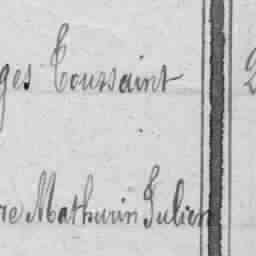 ges Toussaint
re Mathurin Julien